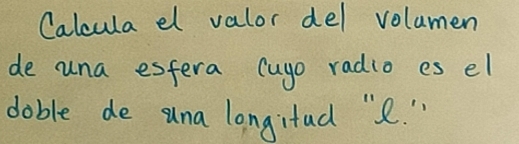 Calcula el valor del volumen
de una esfera cuyo radio es el
doble de una longitud "l."